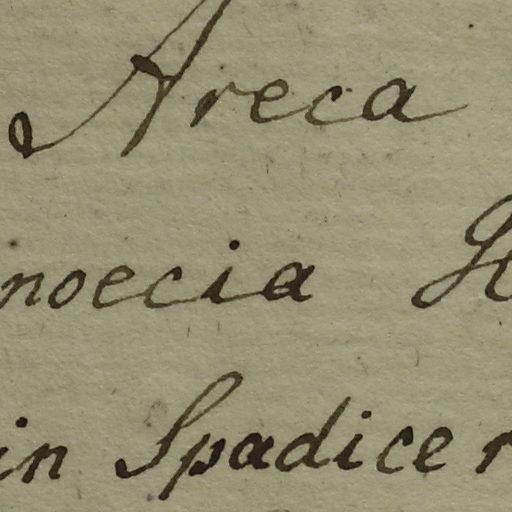 Areca
noecia H
in Spadice r